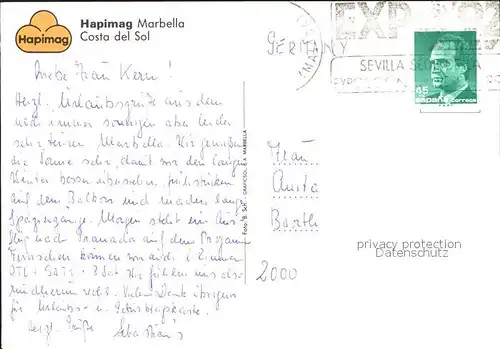 Hapimag Marbella
Costa del Sol
Hapimag
GERMANY
EXPO 92
SEVILLA
45
españa correos
Liebe Frau Kern!
Herzl. Urlaubsgrüße aus dem
noch immer sonnigen aber leider
sehr teuren Marbella. Wir genießen
die Sonne sehr, damit wir den langen
Winter besser überstehen, frühstücken
auf dem Balkon und machen lange
Spaziergänge. Morgen steht ein Aus
flug nach Granada auf dem Programm
Fernsehen können wir auch
RTL + SAT 1 + 3 Sat Wir fühlen uns also
rundherum wohl. Vielen Dank übrigens
für Urlaubs- u. Geburtstagskarte.
Herzl. Grüße
Frau
Anita
Barth
2000
privacy protection
Datenschutz